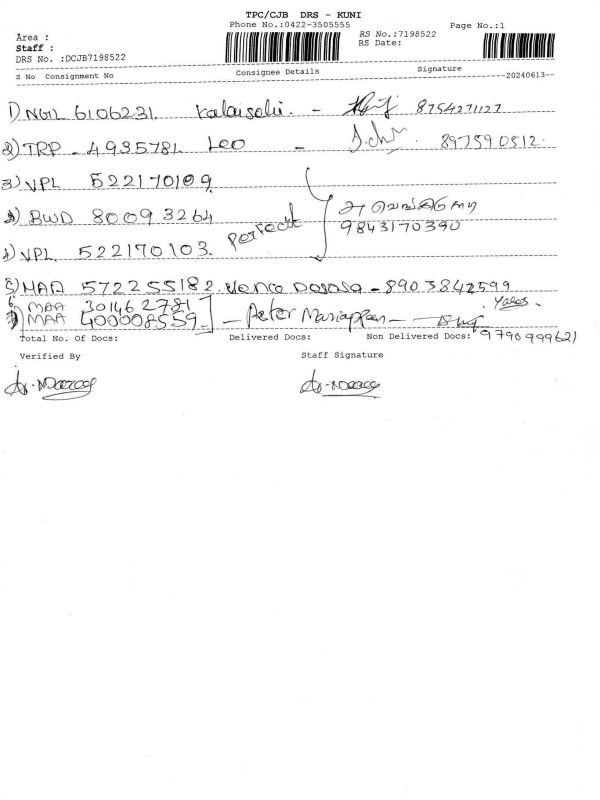 TPC/CJB DRS - KUNI
Phone No.:0422-3505555
Page No.:1
Area :
RS No.:7198522
Staff :
RS Date:
DRS No. :DCJB7198522
S No Consignment No Consignee Details Signature
20240613
1) NGL 6106231. Kalaiselvi. - 8754271127
2) TRP - 4935781. Leo - 897590512.
3) VPL 522170109
BWD 80093264 Perfect
9843170390
4) VPL 522170103.
5) MAA 572255182 - 8903842599
6. MAA 301462781
MAA 400008559 - Peter Mariappan -
Total No. Of Docs: Delivered Docs: Non Delivered Docs: 9790999621
Verified By Staff Signature